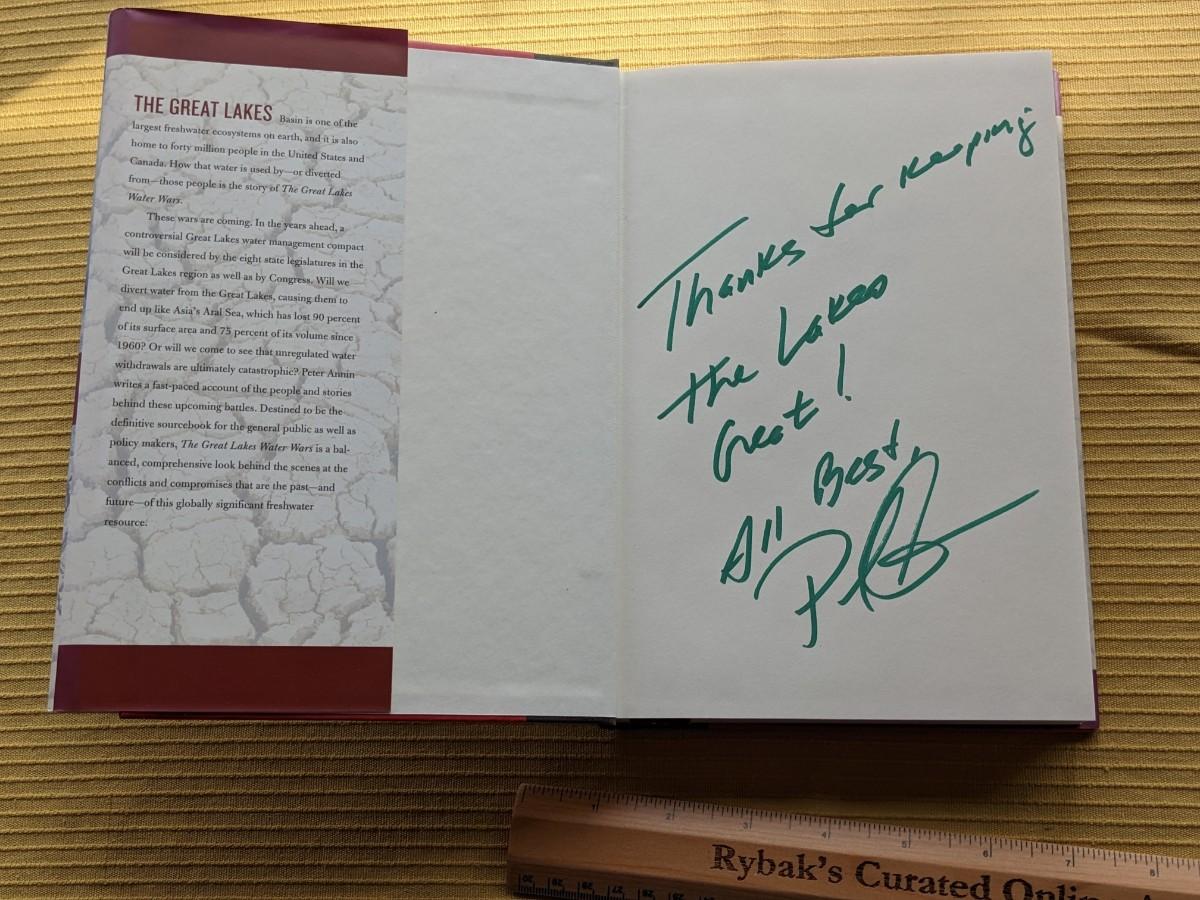 THE GREAT LAKES Basin is one of the
largest freshwater ecosystems on earth, and it is also
home to forty million people in the United States and
Canada. How that water is used by—or diverted
from—those people is the story of The Great Lakes
Water Wars.
These wars are coming. In the years ahead, a
controversial Great Lakes water management compact
will be considered by the eight state legislatures in the
Great Lakes region as well as by Congress. Will we
divert water from the Great Lakes, causing them to
end up like Asia's Aral Sea, which has lost 90 percent
of its surface area and 75 percent of its volume since
1960? Or will we come to see that unregulated water
withdrawals are ultimately catastrophic? Peter Annin
writes a fast-paced account of the people and stories
behind these upcoming battles. Destined to be the
definitive sourcebook for the general public as well as
policy makers, The Great Lakes Water Wars is a bal-
anced, comprehensive look behind the scenes at the
conflicts and compromises that are the past—and
future—of this globally significant freshwater
resource.
Thanks for keeping
the Lakes
Great!
All Best,
1 2 3 4 5 6 7 8
Rybak's Curated Online
30 29 28 27 26 25